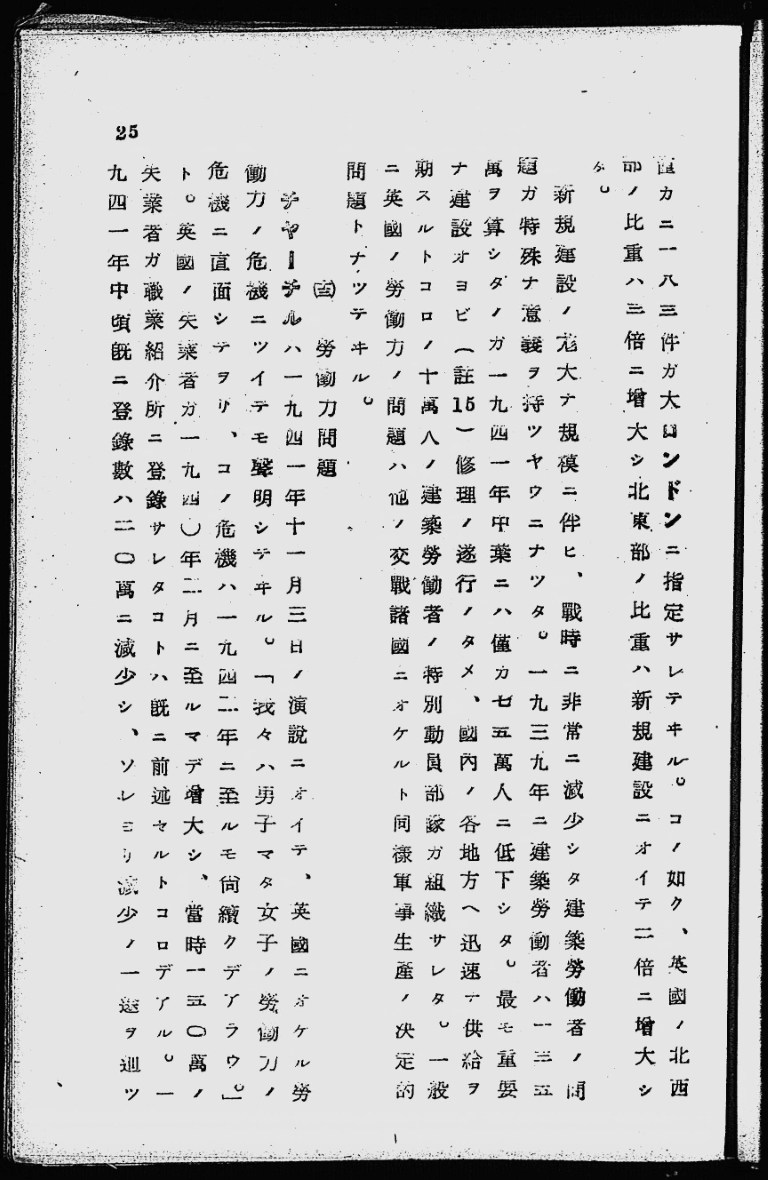 僅カニ一八三件ガ大ロンドンニ指定サレテヰル。コノ如ク、英國ノ北西
部ノ比重ハ三倍ニ增大シ北東部ノ比重ハ新規建設ニオイテ二倍ニ增大シ
タ。
新規建設ノ尨大ナ規模ニ伴ヒ、戰時ニ非常ニ減少シタ建築勞働者ノ問
題ガ特殊ナ意義ヲ持ツヤウニナツタ。一九三九年ニ建築勞働者ハ一三五
萬ヲ算シタノガ一九四一年中葉ニハ僅カ七五萬人ニ低下シタ。最モ重要
ナ建設オヨビ（註15）修理ノ遂行ノタメ、國內ノ各地方へ迅速ナ供給ヲ
期スルトコロノ十萬人ノ建築勞働者ノ特別動員部隊ガ組織サレタ。一般
ニ英國ノ勞働力ノ問題ハ他ノ交戰諸國ニオケルト同樣軍事生産ノ決定的
問題トナツテヰル。
勞働力問題
チヤーチルハ一九四一年十一月三日ノ演說ニオイテ、英國ニオケル勞
働力ノ危機ニツイテモ聲明シテヰル。「我々ハ男子マタ女子ノ勞働力ノ
危機ニ直面シテヲリ、コノ危機ハ一九四二年ニ至ルモ尙續クデアラウ。」
ト。英國ノ失業者ガ一九四〇年二月ニ至ルマデ增大シ、當時一五〇萬ノ
失業者ガ職業紹介所ニ登錄サレタコトハ既ニ前述セルトコロデアル。一
九四一年中頃既ニ登錄數ハ二〇萬ニ減少シ、ソレヨリ減少ノ一途ヲ辿ツ
25